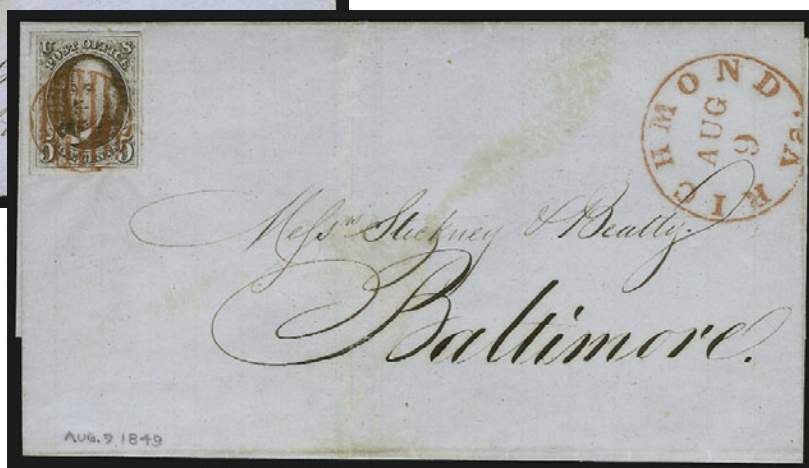 U S
POST OFFICE
5 5
RICHMOND Va.
AUG
9
Messrs Stickney & Beatty.
Baltimore.
AUG. 9 1849